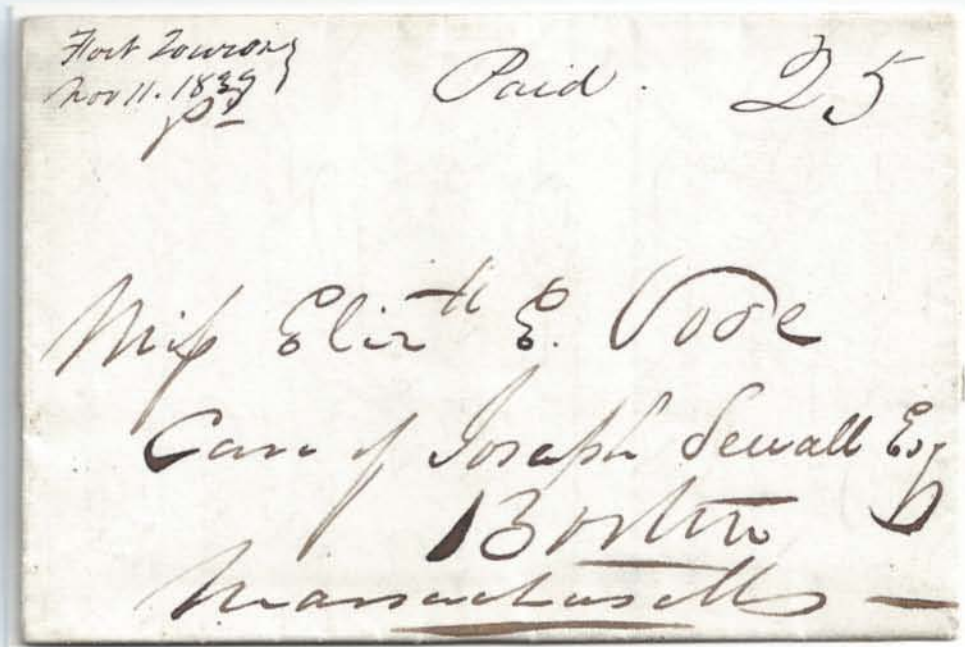 Fort Towson
Nov 11. 1839
Paid. 25
Miss Elizth E. Vose
Care of Joseph Sewall Esq
Boston
Massachusetts